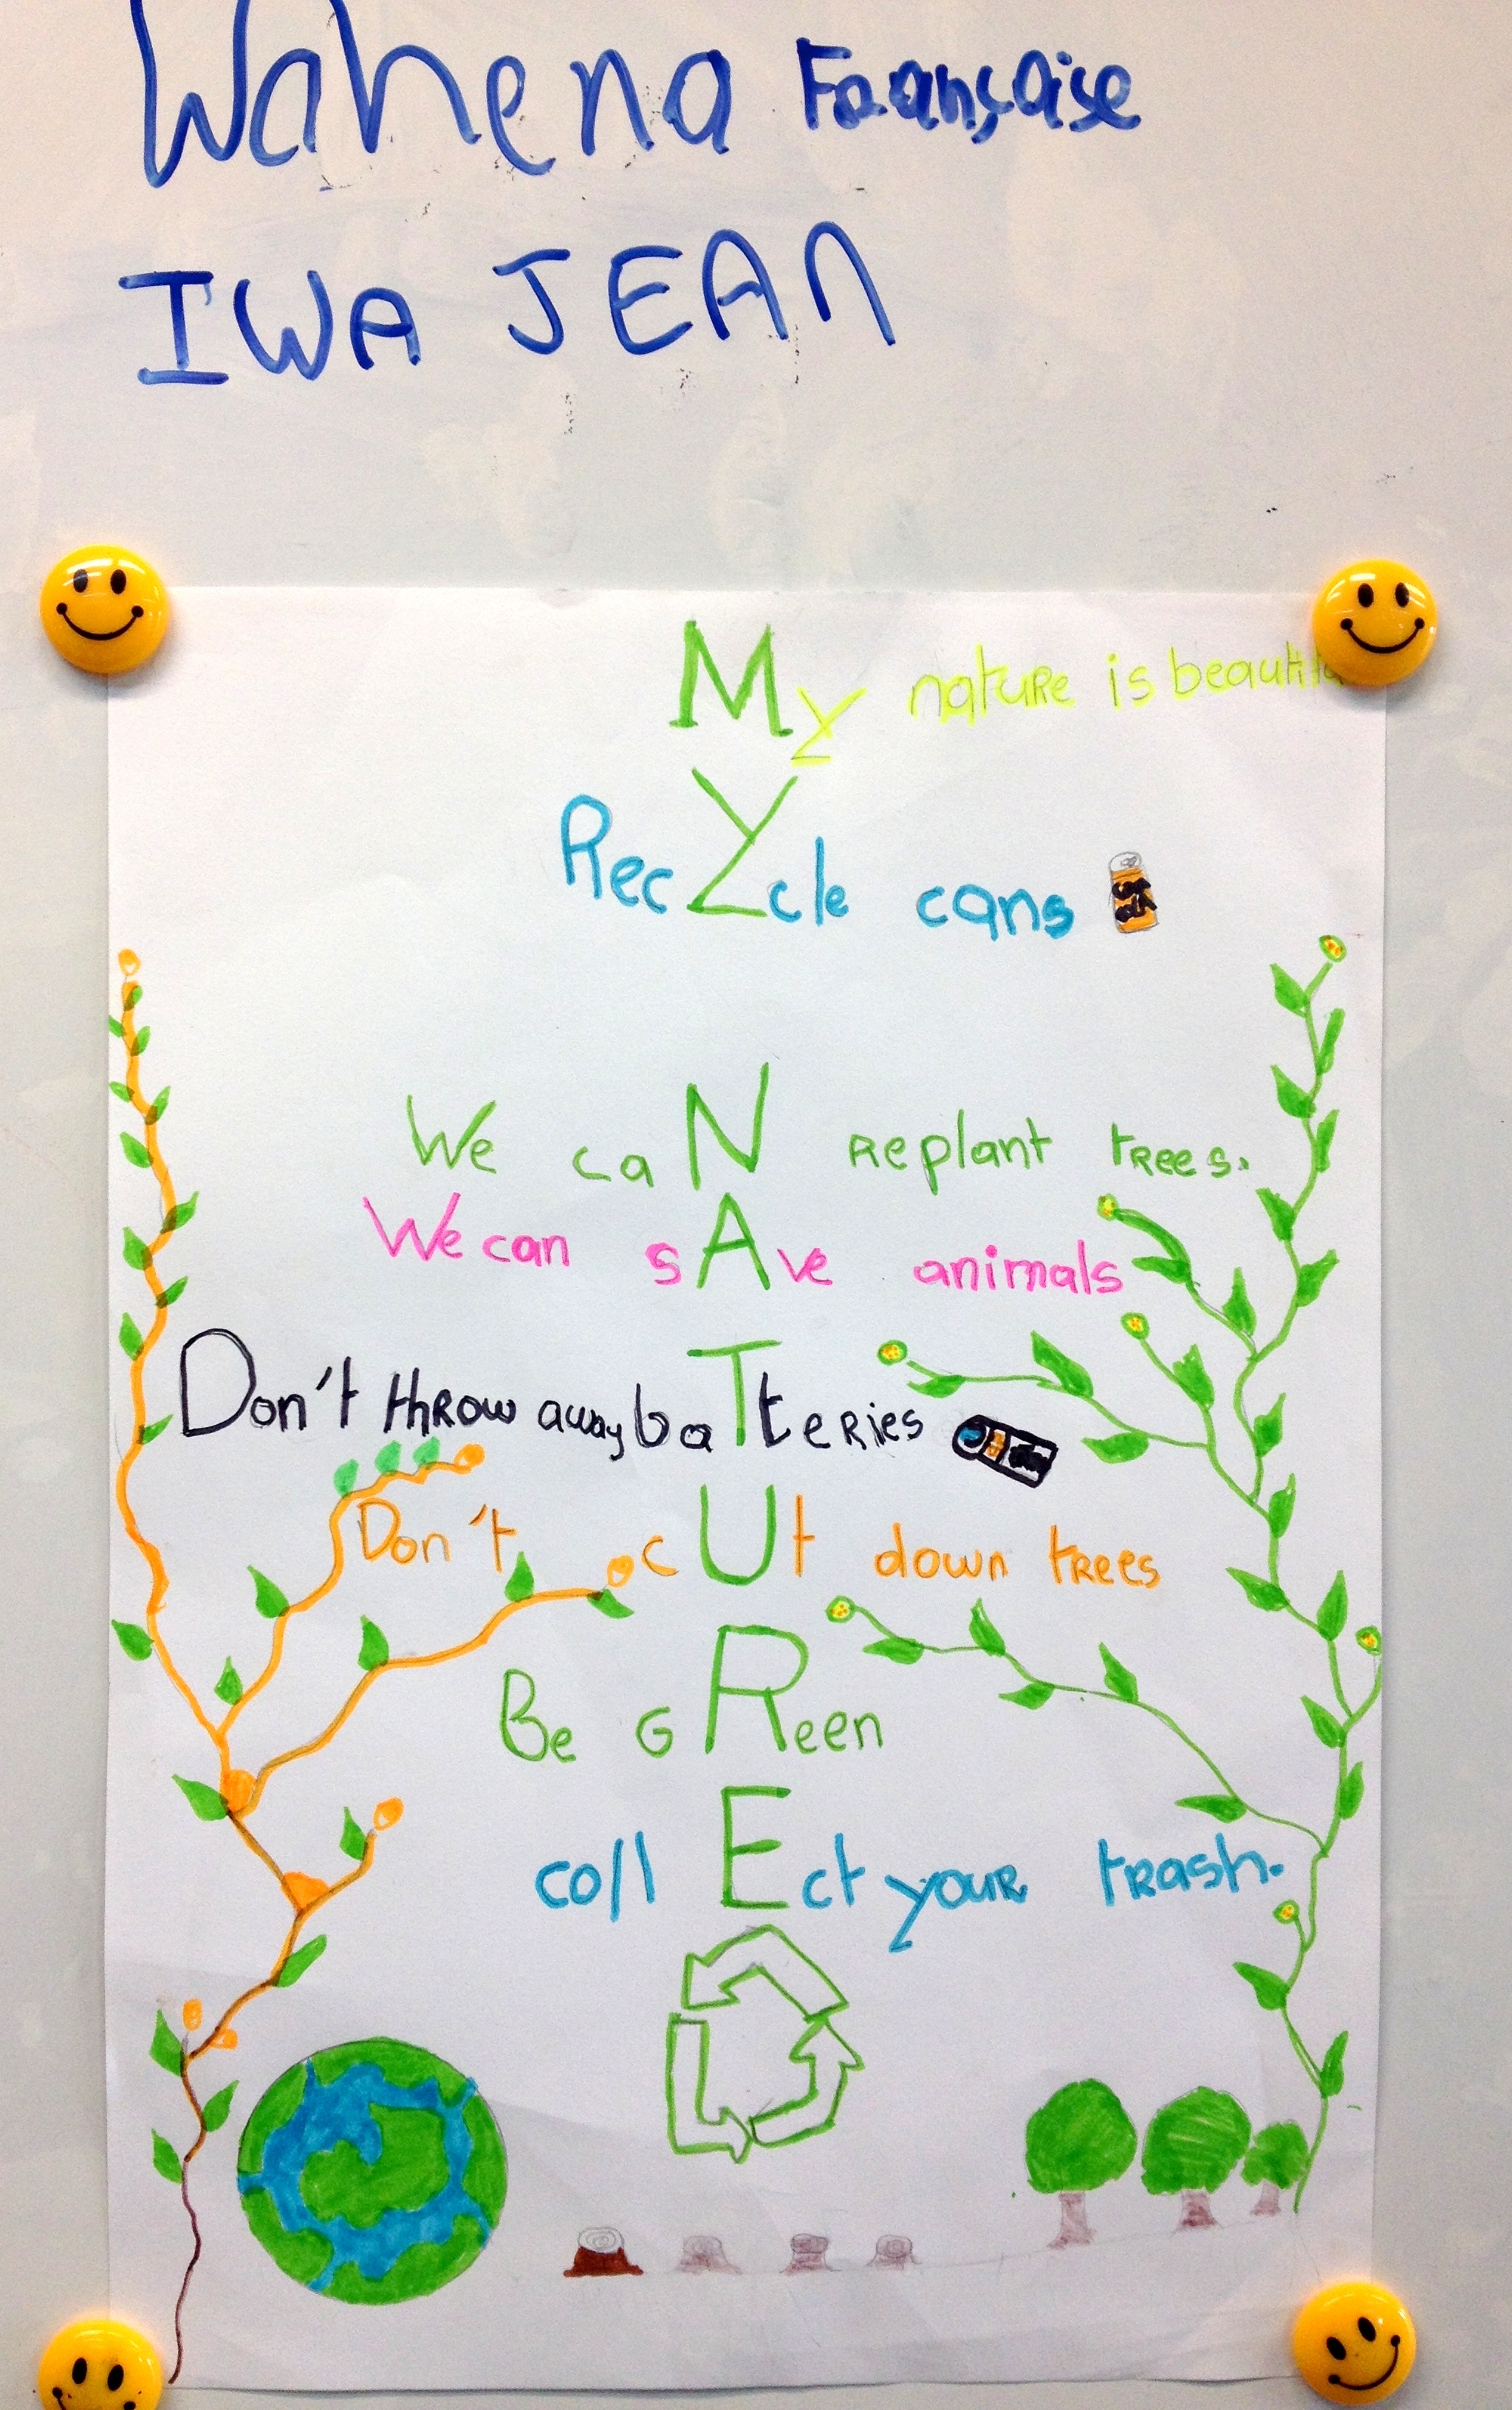 Wahena Française
IWA JEAN
My nature is beautiful
RecYcle cans
We caN replant trees.
We can sAve animals
Don't throw away baTteries
Don't cUt down trees
Be gReen
collEct your trash.